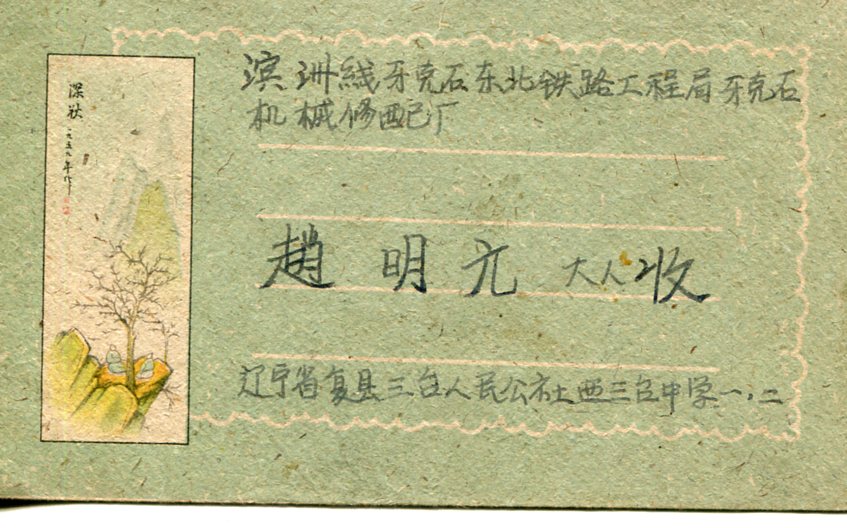 深秋
一九五八年作
滨洲線牙克石东北铁路工程局牙克石
机械修配厂
趙明亢 大人收
辽宁省复县三台人民公社西三台中学一.二